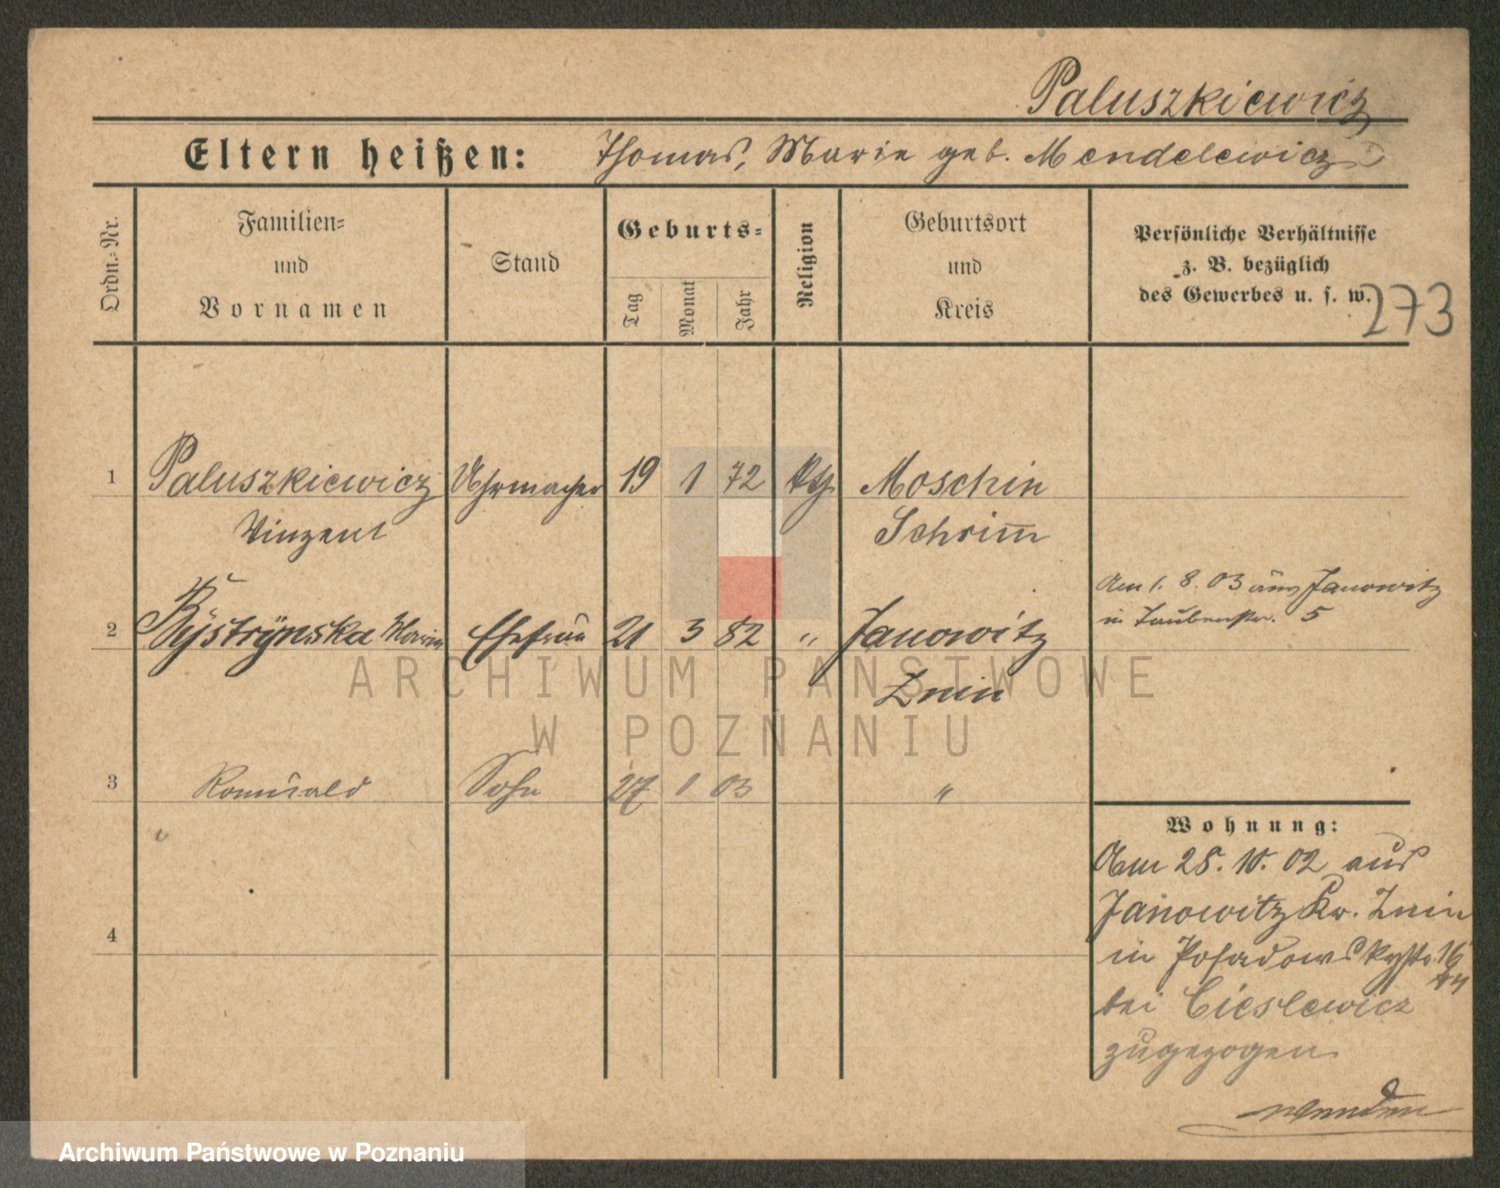 Paluszkiewicz
Eltern heißen: Thomas, Marie geb. Mendelewicz
Ordn.-Nr.
Familien-
und
Vornamen
Stand
Geburts-
Tag
Monat
Jahr
Religion
Geburtsort
und
Kreis
Persönliche Verhältnisse
z. B. bezüglich
des Gewerbes u. s. w.
273
1 Paluszkiewicz Uhrmacher 19 1 72 kth Moschin
Vinzent Schrim̅
Am 1. 8. 03 aus Janowitz
in Taubenstr. 5
2 Bystrynska Marie Ehefrau 21 3 82 " Janowitz
Znin
ARCHIWUM PAŃSTWOWE
W POZNANIU
3 Romuald Sohn 27 1 03 "
Wohnung:
Am 25. 10. 02 aus
Janowitz Kr. Znin
4
in Posadowskystr. 16
bei Cieslewicz
zugezogen.
Archiwum Państwowe w Poznaniu